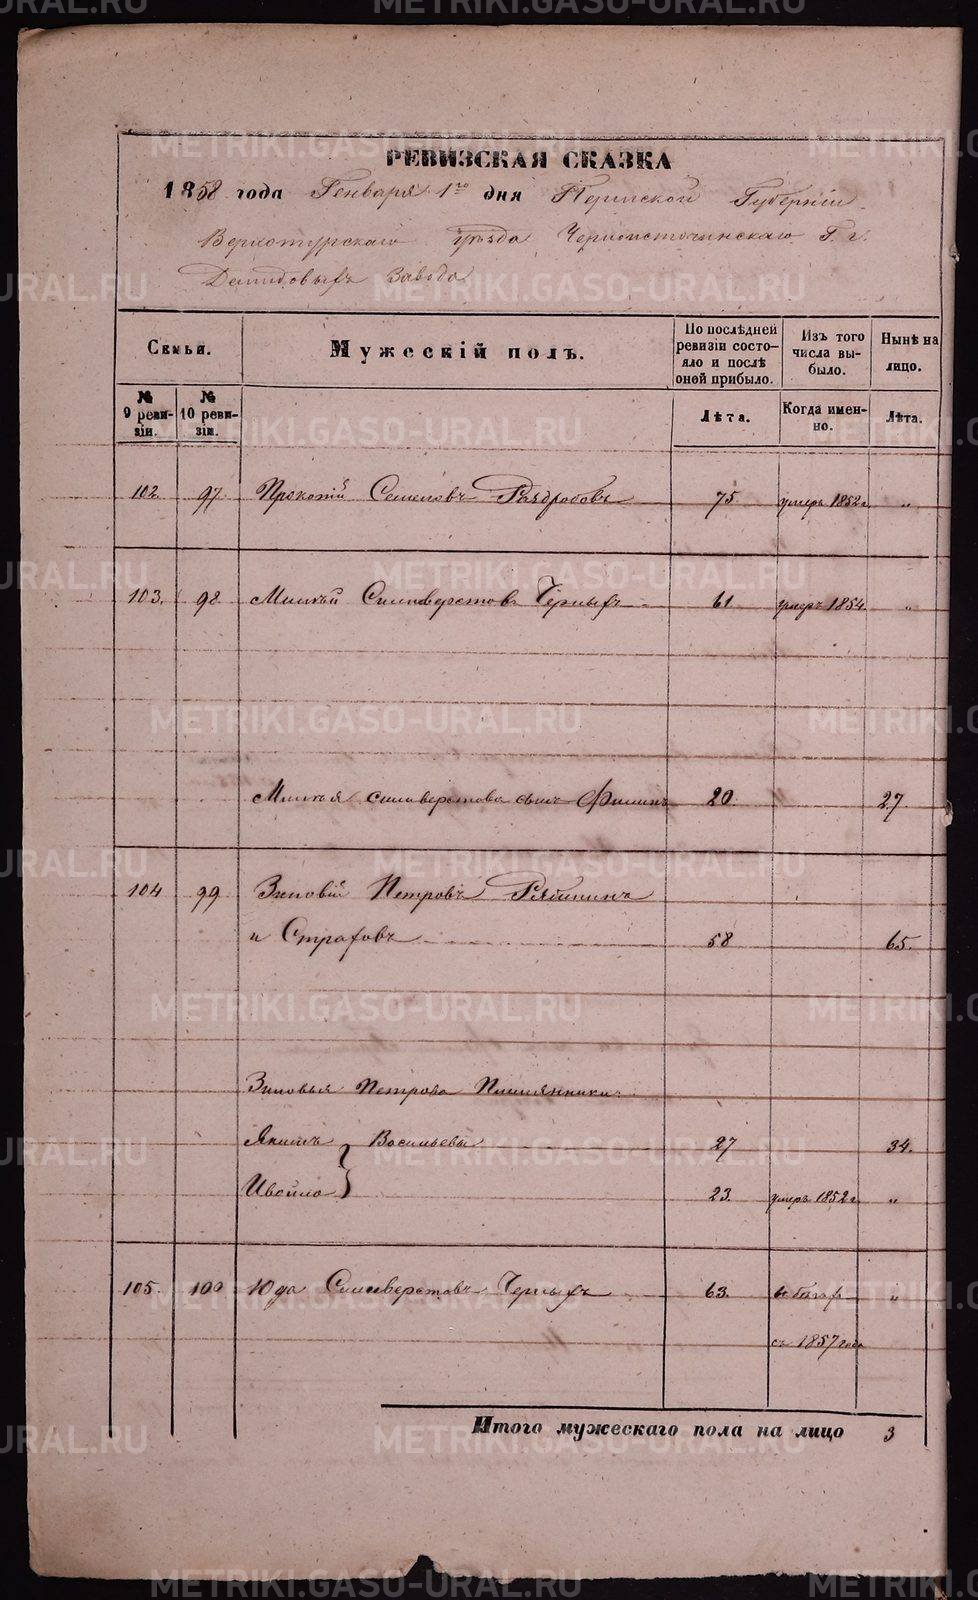 РЕВИЗСКАЯ СКАЗКА
1858 года Генваря 1го дня Пермской Губернiи
Верхотурскаго уѣзда Черноисточинскаго Г. г.
Демидовыхъ Завода
Семьи.
Мужескiй полъ.
По послѣдней ревизiи состо-
яло и послѣ
оней прибыло.
Изъ того
числа вы-
было.
Нынѣ на
лицо.
№
9 реви-
зiи.
№
10 реви-
зiи.
Лѣта.
Когда имен-
но.
Лѣта.
102. 97. Прокопiй Семеновъ Раздробовъ 75. умеръ 1852 г. „
103. 98 Силиверстовъ Черныхъ 61 умеръ 1854 „
Силиверстова сынъ Филипъ 20. 27.
104 99 Зиновiй Петровъ Рябининъ
и Страховъ 58 65.
Зиновья Петрова Племянники
Якимъ Васильевы 27 34.
23. умеръ 1852 г. „
105. 100 Юда Силиверстовъ Черныхъ 63. въ бѣгахъ „
съ 1857 года
Итого мужескаго пола на лицо 3
METRIKI.GASO-URAL.RU